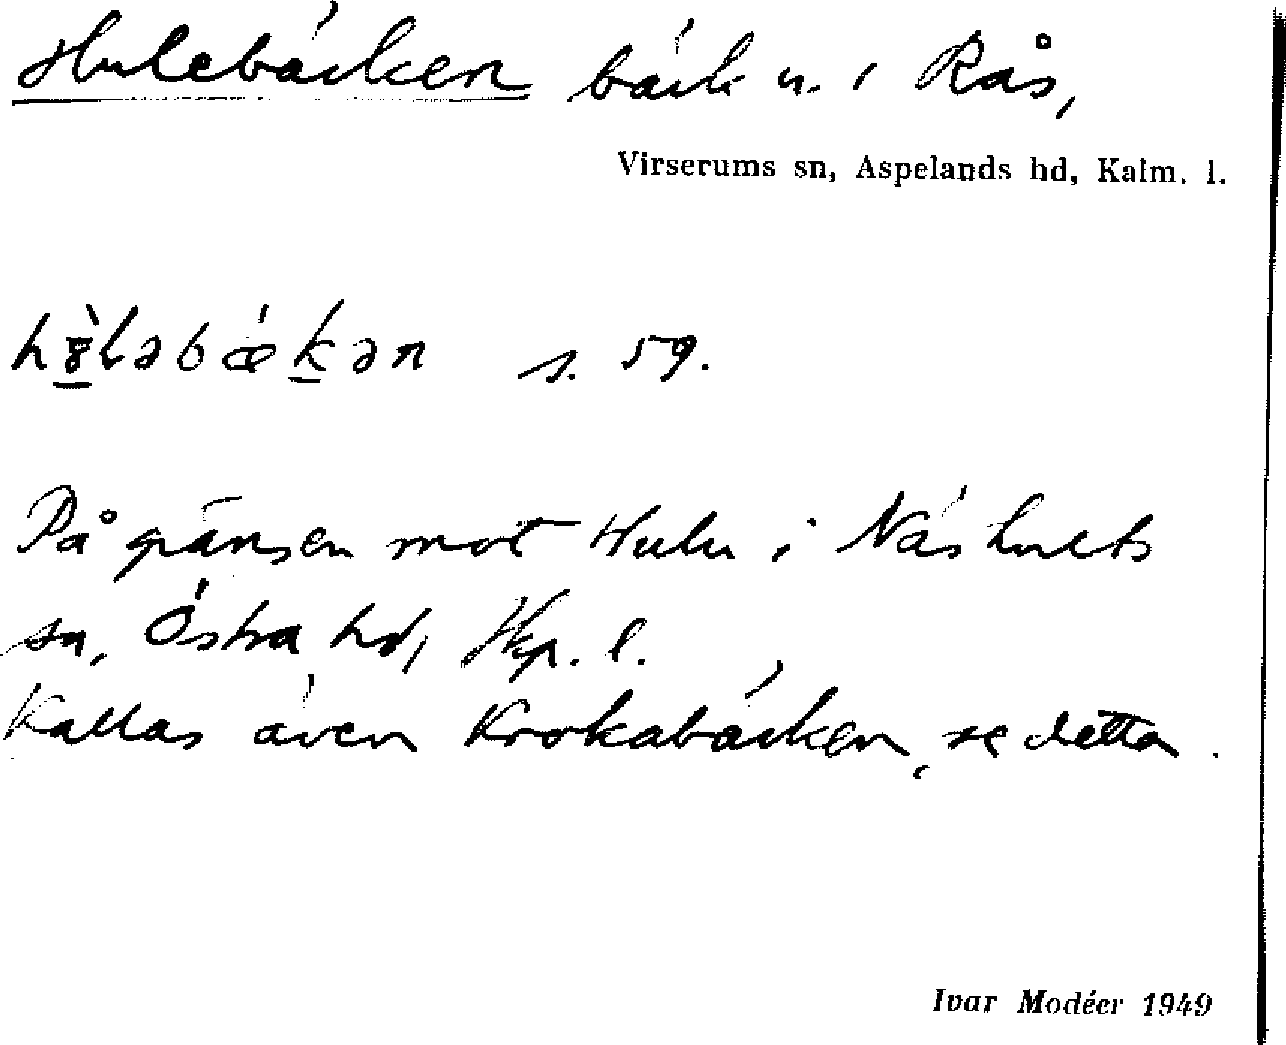 Hulebäcken bäck n. i Rås,
Virserums sn, Aspelands hd, Kalm. l.
s. 59.
På gränsen mot Hulu i Näshults
sn, Östra hd, Kp. l.
Kallas även Krokabäcken, se detta.
Ivar Modéer 1949